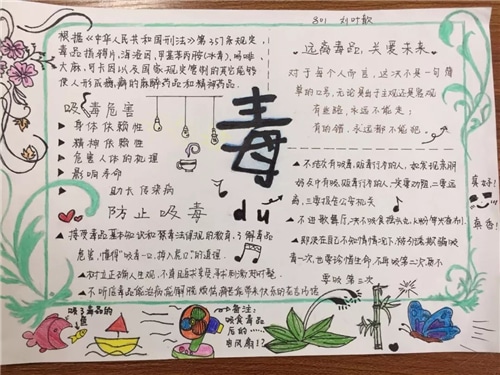 801 刘叶歆
根据《中华人民共和国刑法》第357条规定,
毒品指鸦片、海洛因、甲基苯丙胺(冰毒)、吗啡、
大麻、可卡因以及国家规定管制的其它能够
使人形成瘾癖的麻醉药品和精神药品。
吸毒危害
身体依赖性
精神依赖性
危害人体的机理
影响寿命
助长传染病
防止吸毒
接受毒品基本知识和禁毒法律规的教育,了解毒品
危害,懂得“吸毒一口,掉入虎口”的道理。
树立正确人生观,不盲目追求享受,寻求刺激,赶时髦.
不听信毒品能治病,能解脱烦恼
毒
du
远离毒品,关爱未来
对于每个人而言,这决不是一句简
单的口号,无论是出于主观还是客观
有些路,永远不能走;
有的错,永远都不能犯.
不结交有吸毒、贩毒行为的人,如发现亲朋
好友中有吸、贩毒行为的人,一定要劝阻,二要远
离,三要报告公安机关
不进歌舞厅,决不吸食摇头丸
即使在自己不知情情况下,被引诱、欺骗吸
毒一次,也要珍惜生命,不再吸第二次,更不
要吸第三次
真好!
真香!
吸了毒品的
鱼
备注:
吸食毒品
后的
电风扇!?